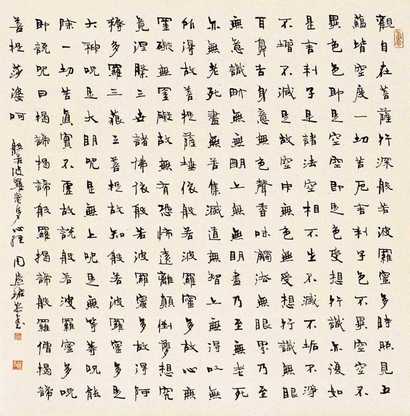 觀自在菩薩行深般若波羅蜜多時照見五
蘊皆空度一切苦厄舍利子色不異空空不
異色色即是空空即是色受想行識亦復如
是舍利子是諸法空相不生不滅不垢不淨
不增不減是故空中無色無受想行識無眼
耳鼻舌身意無色聲香味觸法無眼界乃至
無意識界無無明亦無無明盡乃至無老死
亦無老死盡無苦集滅道無智亦無得以無
所得故菩提薩埵依般若波羅蜜多故心無
罣礙無罣礙故無有恐怖遠離顛倒夢想究
竟涅槃三世諸佛依般若波羅蜜多故得阿
耨多羅三藐三菩提故知般若波羅蜜多是
大神咒是大明咒是無上咒是無等等咒能
除一切苦真實不虛故說般若波羅蜜多咒
即說咒曰揭諦揭諦般羅揭諦般羅僧揭諦
菩提莎婆呵
般若波羅蜜多心經 周